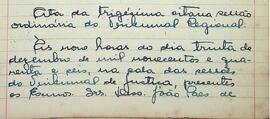 Ata da trigésima oitava sessão
ordinária do Tribunal Regional.
Às nove horas do dia trinta de
dezembro de mil novecentos e qua-
renta e seis, na sala das sessões
do Tribunal de Justiça, presentes
os Exmos. Srs. Des. João Paes de